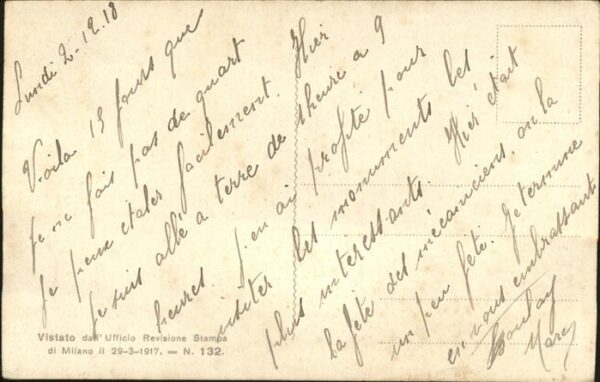 Lundi 2-12.18
Voila 15 jours que
je ne fais pas de quart
je peux etaler facilement. Hier
je suis allé a terre de 1heure a 9
heures. J'en ai profité pour
visiter les monuments les
plus interessants. Hier était
la fête des mécaniciens, on la
un peu fêté. Je termine
en vous embrassant
Marc
Vistato dall'Ufficio Revisione Stampa
di Milano il 29-3-1917. — N. 132.